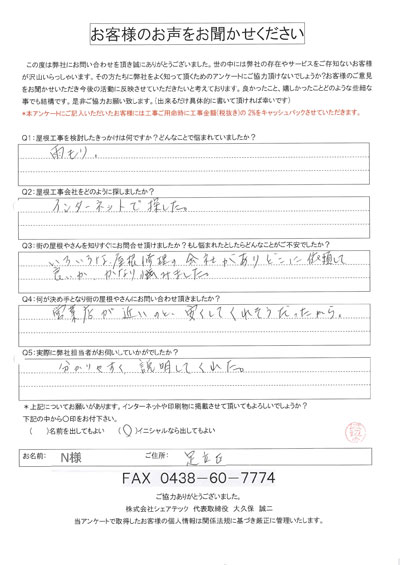 お客様のお声をお聞かせください
この度は弊社にお問い合わせを頂き誠にありがとうございました。世の中には弊社の存在やサービスをご存知ないお客様
が沢山いらっしゃいます。その方たちに弊社をよく知って頂くためのアンケートにご協力頂けないでしょうか?お客様のご意見
をお聞かせいただき今後の活動に反映させていただきたいと考えております。良かったことと、嬉しかったことどのような些細な
事でも結構です。是非ご協力お願い致します。(出来るだけ具体的に書いて頂ければ幸いです)
*本アンケートにご記入いただいたお客様には工事ご用命時に工事金額(税抜き)の2%をキャッシュバックさせていただきます。
Q1:屋根工事を検討したきっかけは何ですか?どんなことで悩まれていましたか?
雨もり。
Q2:屋根工事会社をどのように探しましたか?
インターネットで探した。
Q3:街の屋根やさんを知りすぐにお問合せ頂けましたか?もし悩まれたとしたらどんなことがご不安でしたか?
いろいろな屋根修理の会社がありどこに依頼して
良いか かなり悩みました。
Q4:何が決め手となり街の屋根やさんにお問い合わせ頂きましたか?
営業店が近いのと、安くしてくれそうだったから。
Q5:実際に弊社担当者がお伺いしていかがでしたか?
分かりやすく 説明してくれた。
*上記についてお願いがあります。インターネットや印刷物に掲載させて頂いてもよろしいでしょうか?
下記の中から〇印をお付下さい。
( )名前を出してもよい (〇)イニシャルなら出してもよい
お名前: N様 ご住所: 足立区
FAX 0438-60-7774
ご協力ありがとうございました。
株式会社シェアテック 代表取締役 大久保 誠二
当アンケートで取得したお客様の個人情報は関係法規に基づき厳正に管理いたします。